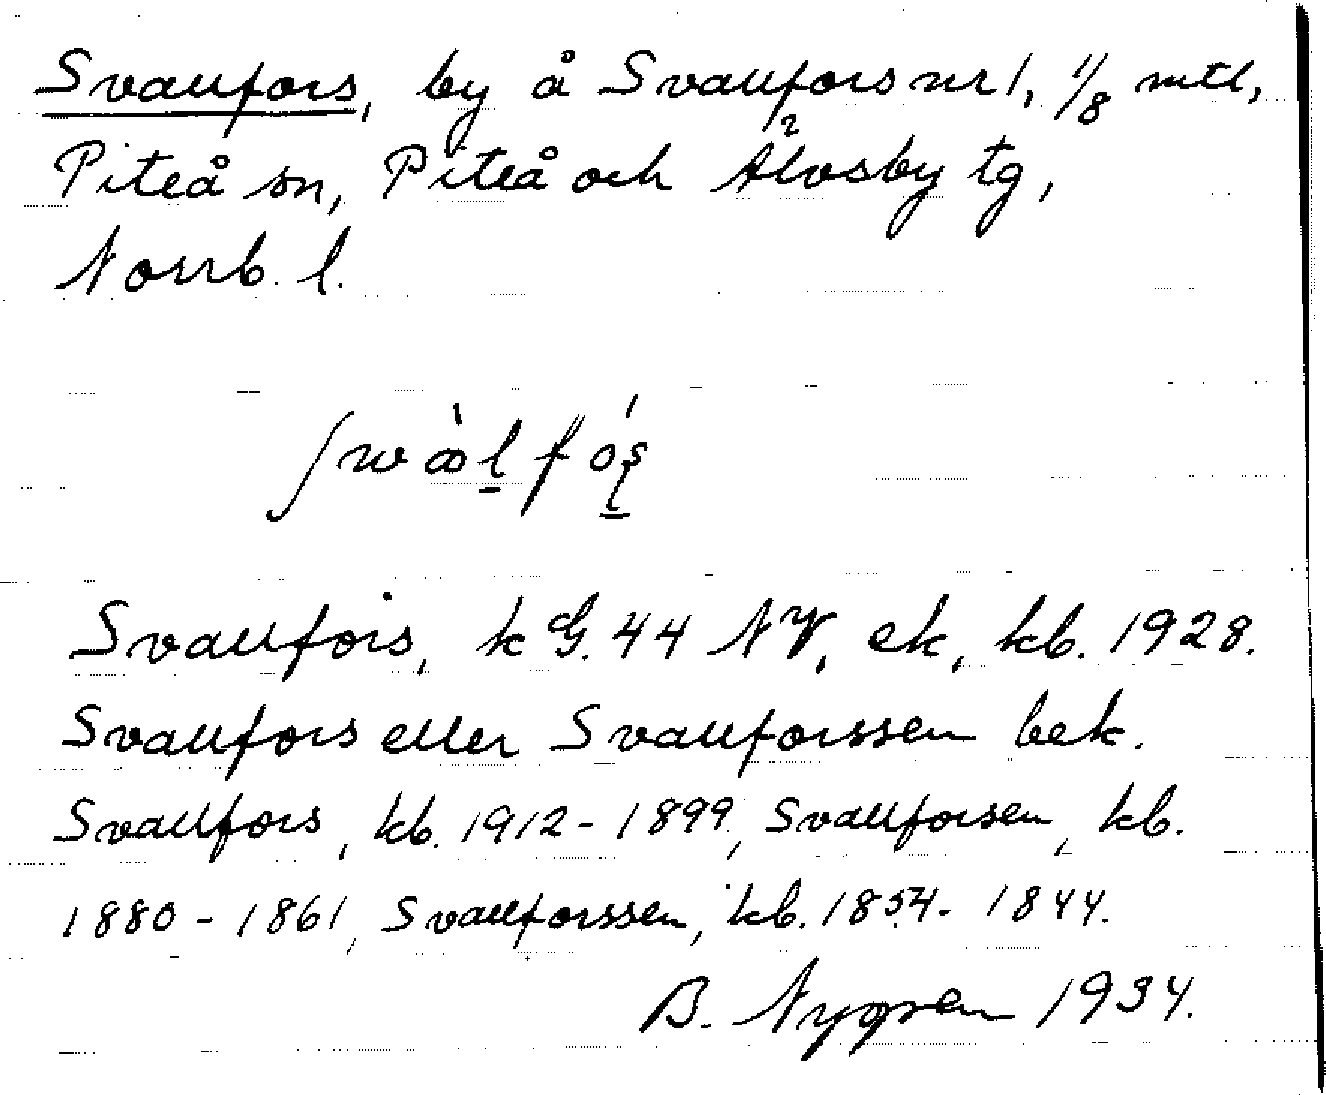 Svallfors, by å Svallfors nr 1, 1/8 mtl,
Piteå sn, Piteå och Älvsby tg,
Norrb. l.
Svallfors, k G. 44 NV, ek, kb. 1928.
Svallfors eller Svallforssen bek.
Svallfors, kb. 1912-1899, Svallforsen, kb.
1880-1861, Svallforssen, kb. 1854-1844.
B. Nygren 1934.